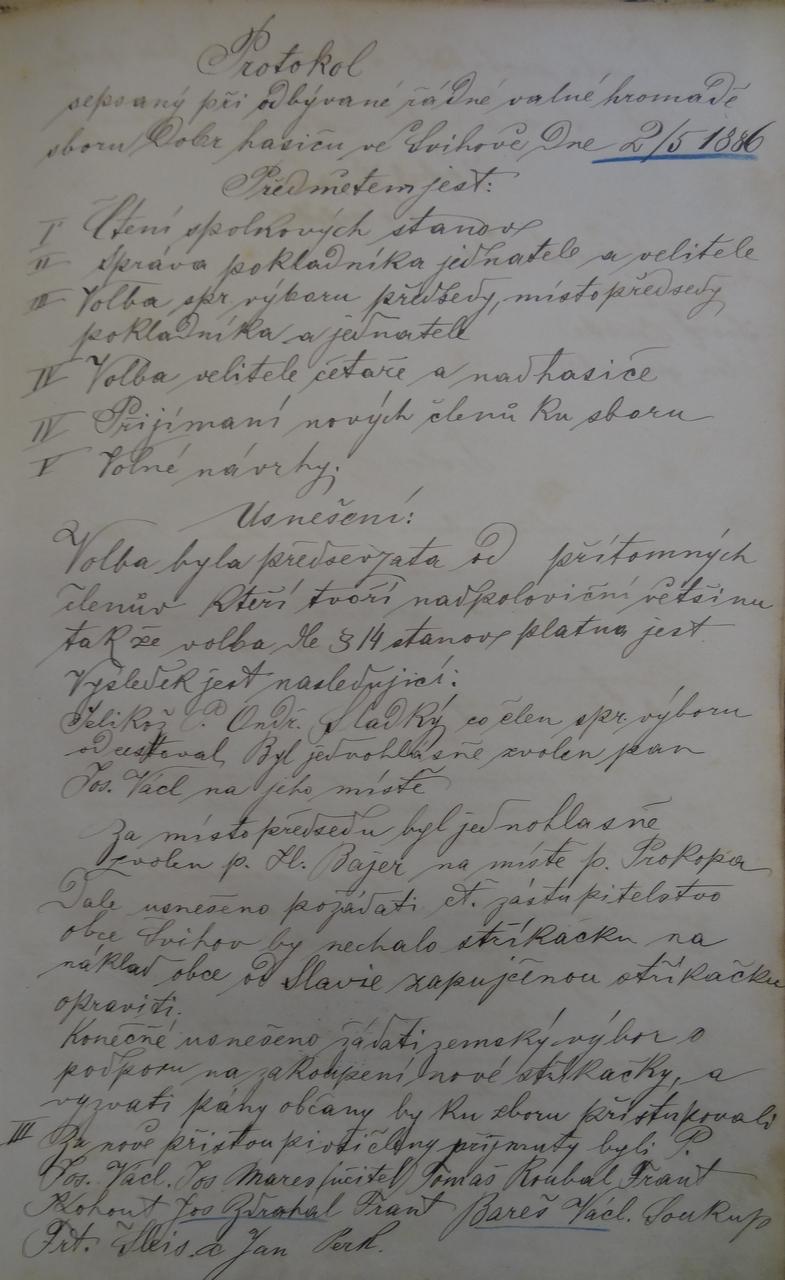 Protokol
sepsaný při odbývané řádné valné hromadě
sboru Dobr hasiču ve Švihově Dne 2/5 1886
Předmětem jest:
I Čtení spolkových stanov
II správa pokladníka jednatele a velitele
III Volba spr. výboru předsedy, místopředsedy
pokladníka a jednatele
IV Volba velitele četaře a nadhasiče
IV Přijímaní nových členů ku sboru
V Volné návrhy.
Usnešení:
Volba byla předsevzata od přítomných
členův kteří tvoří nadpoloviční většinu
tak že volba dle § 14 stanov platna jest
Vysledek jest nasledujicí:
Jelikož P. Ondř. Sladký co člen spr. výboru
odcestoval Byl jednohlásně zvolen pan
Jos. Václ na jeho místě
Za místopředsedu byl jednohlasně
zvolen p. H. Bajer na místě p. Prokopa
Dale usnešeno požádati ct. zástupitelstvo
obce Švihov by nechalo stříkačku na
náklad obce od Slavie zapujčenou stříkačku
opraviti.
Konečně usnešeno žádati zemský výbor o
podporu na zakoupení nové stříkačky, a
vyzvati pány občany by ku sboru přistupovali
III Za nově přistoupivší členy přijmuty byli P.
Jos. Václ. Jos Mares učitel Tomáš Roubal Frant
Kohout Jos Zdrahal Frant Bareš Václ. Soukup
Frt. Šleis a Jan Perk.